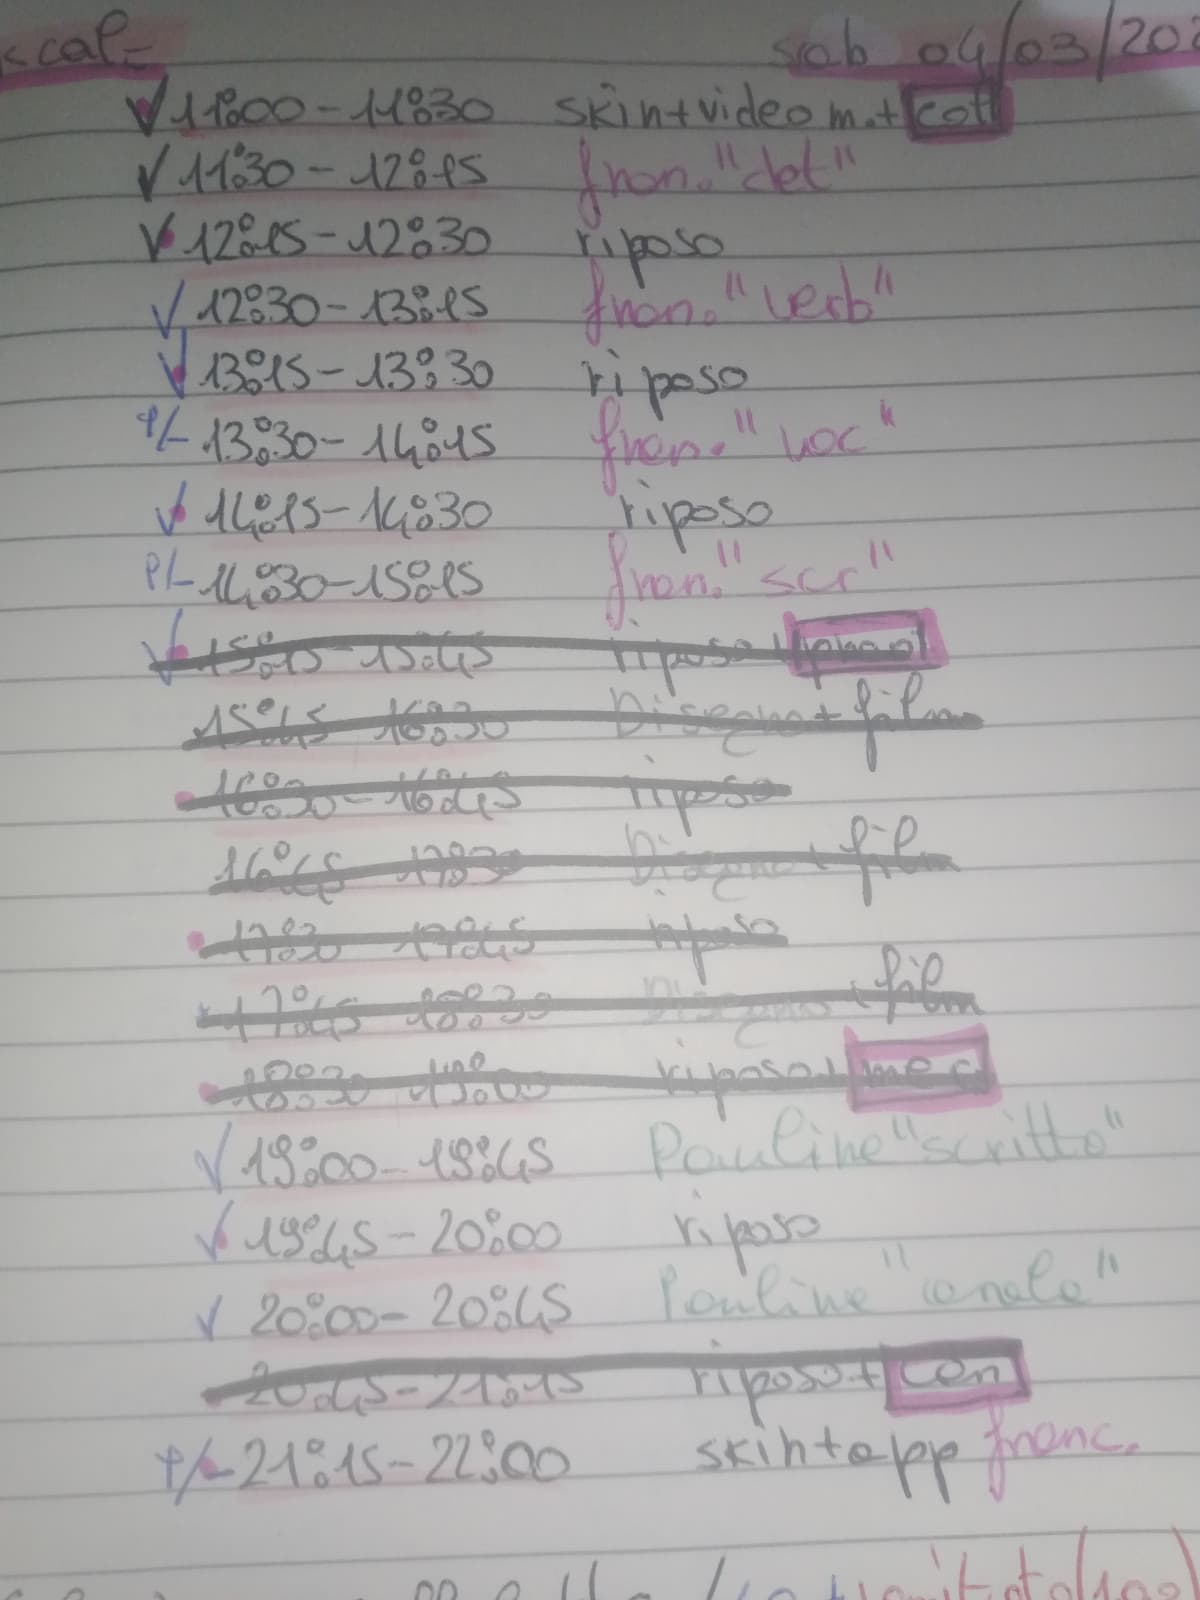 scal= sab 04/03/202
✓ 11:00 - 11:30 skin+video m.+ col
✓ 11:30 - 12:15 fran. "det"
✓ 12:15 - 12:30 riposo
✓ 12:30 - 13:15 fran. "verb"
✓ 13:15 - 13:30 riposo
+/- 13:30 - 14:15 fran. "voc"
✓ 14:15 - 14:30 riposo
+/- 14:30 - 15:15 fran. "scr"
✓ 15:15 - 15:45 riposo
15:45 - 16:30 Disegno + film
16:30 - 16:45 riposo
16:45 - 17:30 Disegno + film
17:30 - 17:45 riposo
17:45 - 18:30 Disegno + film
18:30 - 19:00 riposo + mer
✓ 19:00 - 19:45 Pauline "scritto"
✓ 19:45 - 20:00 riposo
✓ 20:00 - 20:45 Pauline "orale"
20:45 - 21:15 riposo + cen
+/- 21:15 - 22:00 skin+app franc.